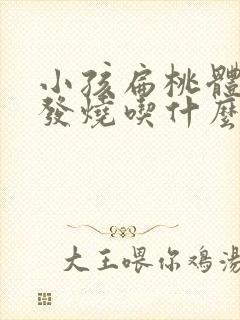 小孩扁桃體
發燒喫什麼
大王喂你鸡湯